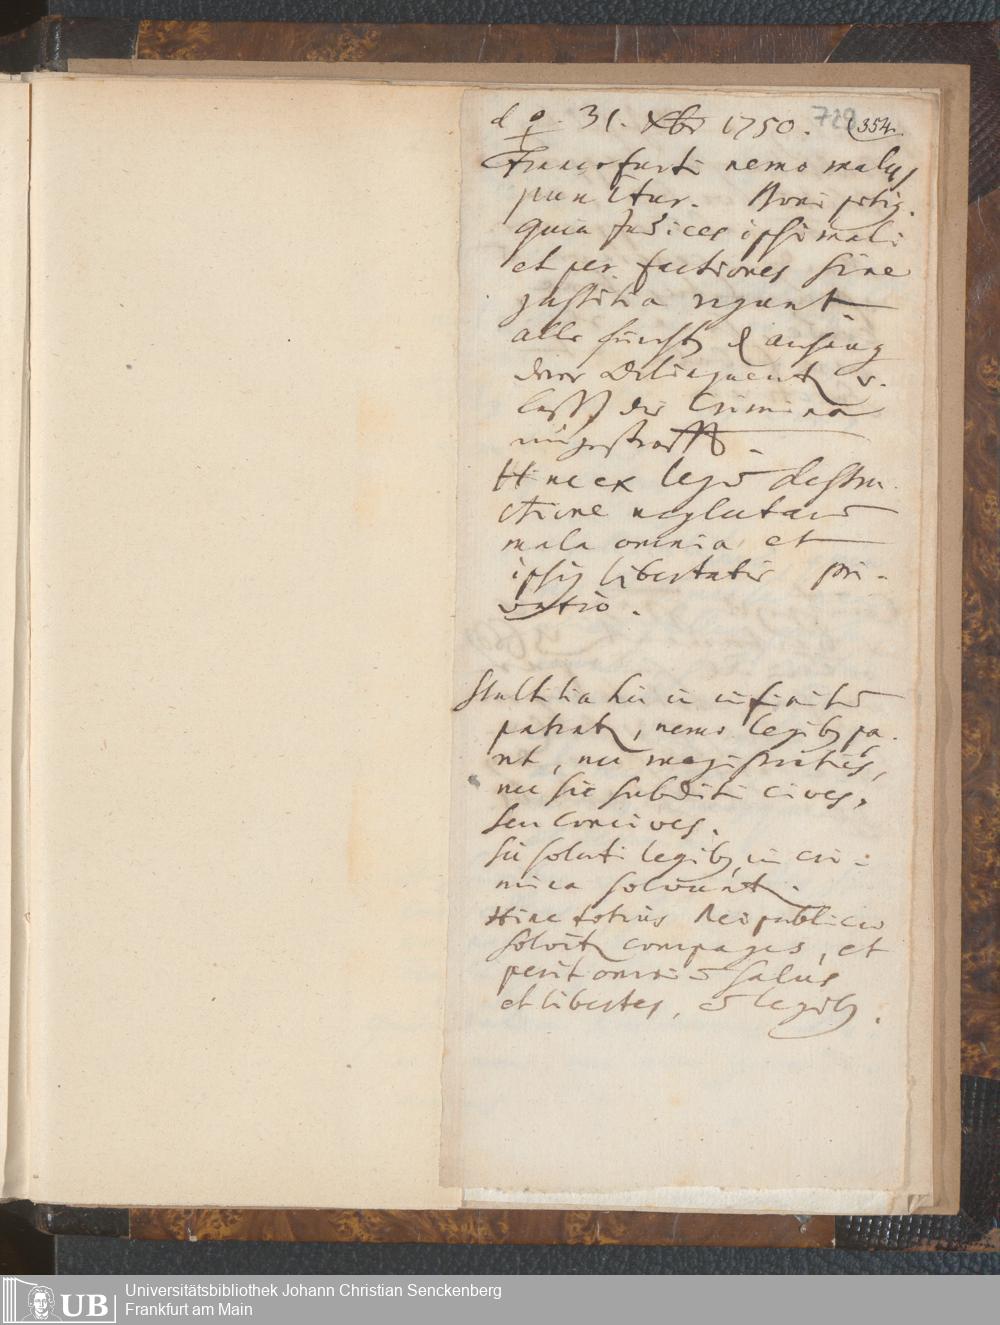 d ☿. 31. Xbr 1750.
738
354.
Francofurti nemo malus
punitur. Boni potiq.
quia Judices ipsi mali
et per factiones sine
justitia regunt
alle
derer Delinquenten v.
lassen die Crimina
ungestrafft.
Hinc ex legum destru-
ctione neglectarum
mala omnia et
ipsiq libertatis pri-
vatio.
Stultitia hic in infinitum
patratur, nemo legibq pa-
ret, nec magistratus,
nec sic subditi cives,
seu concives.
sic soluti legibq in cri-
mina solvunt.
Hinc totius Reipublicae
solvitur compages, et
perit omnium salus
et libertas, cum legibq.
Universitätsbibliothek Johann Christian Senckenberg
Frankfurt am Main
UB